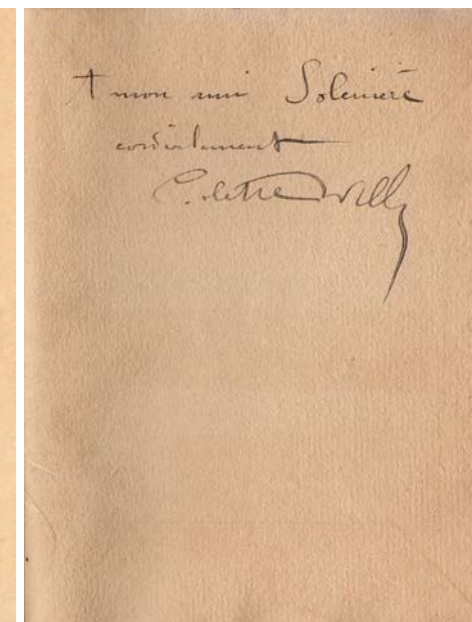 A mon ami Solenière
cordialement
Colette Willy